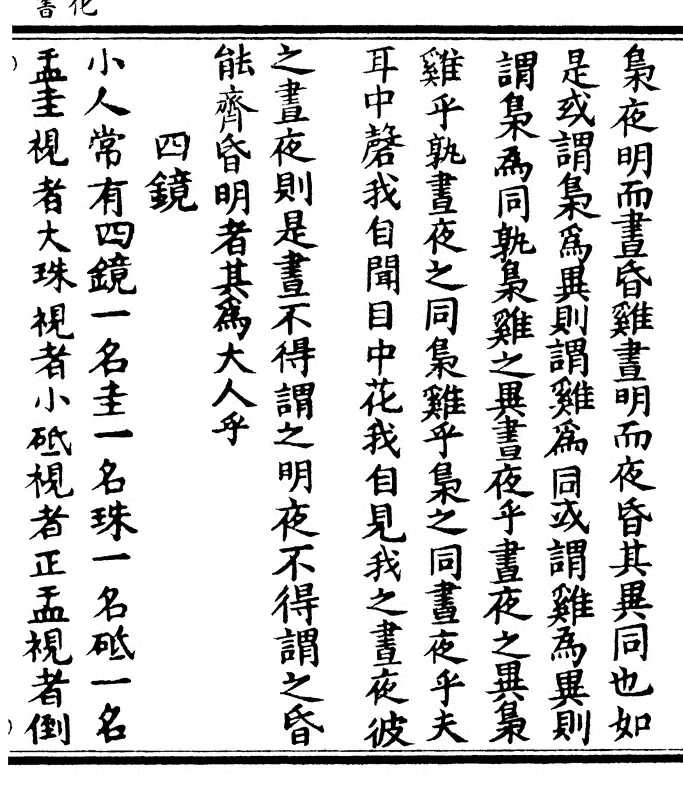 化書
梟夜明而晝昏雞晝明而夜昏其異同也如
是或謂梟爲異則謂雞爲同或謂雞爲異則
謂梟爲同孰梟雞之異晝夜乎晝夜之異梟
雞乎孰晝夜之同梟雞乎梟之同晝夜乎夫
耳中磬我自聞目中花我自見我之晝夜彼
之晝夜則是晝不得謂之明夜不得謂之昏
能齊昏明者其爲大人乎
四鏡
小人常有四鏡一名圭一名珠一名砥一名
盂圭視者大珠視者小砥視者正盂視者倒